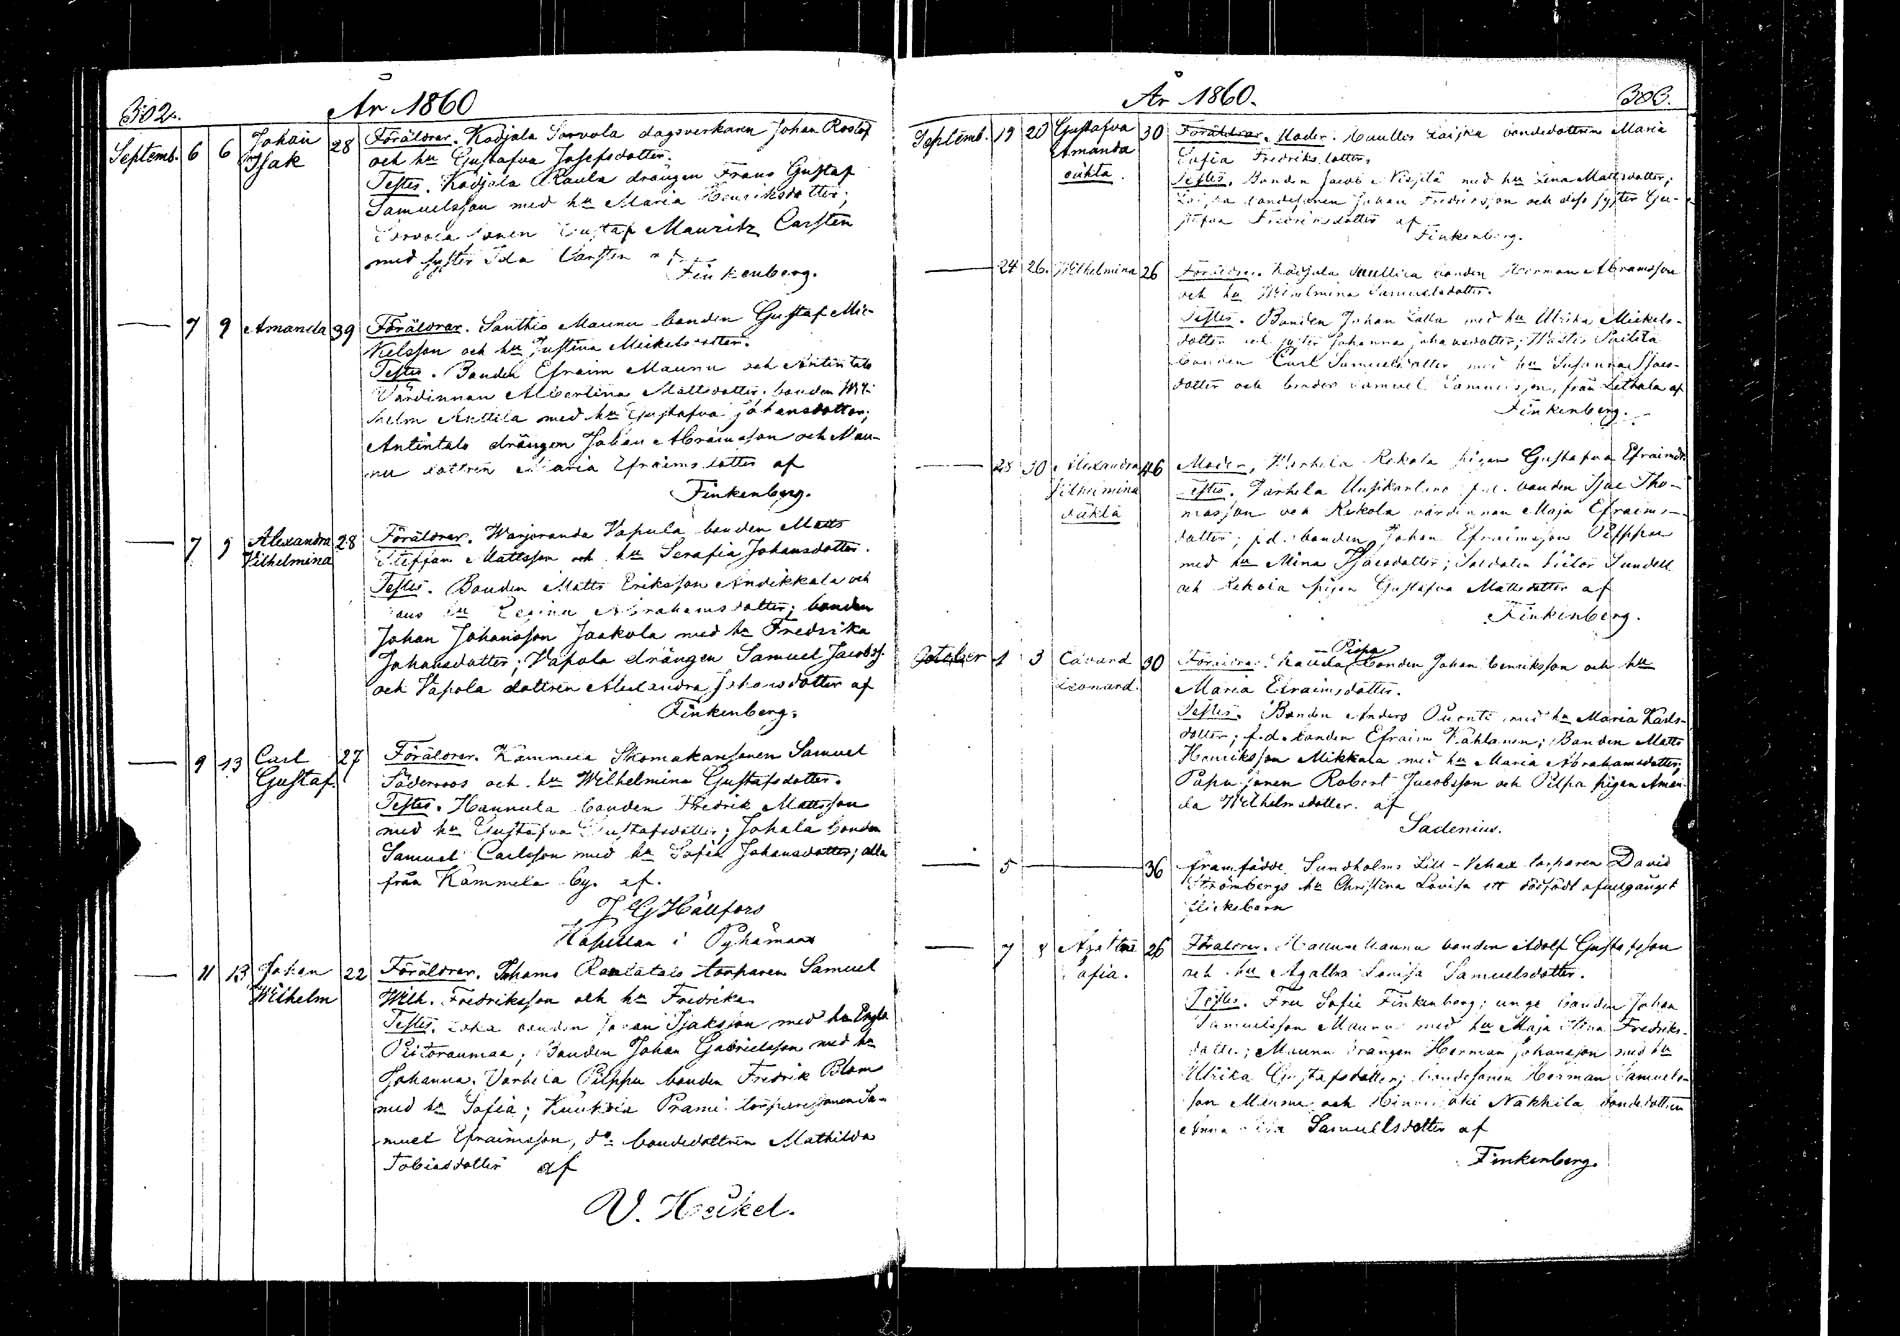 302.
År 1860
Septemb. 6 6 Johan Isak 28 Föräldrar. Kodjala Sorvola dagsverkaren Johan Roslöf
och hu Gustafva Josefsdotter.
Testes. Kodjala Raula drängen Frans Gustaf
Samuelsson med hu Maria Henriksdotter;
Sorvola sonen Gustaf Mauritz Carsten
med syster Ida Carsten af
Finkenberg.
— 7 9 Amanda 39 Föräldrar. Santhio Maunu bonden Gustaf Mic-
kelsson och hu Justina Mickelsdotter.
Testes. Bonden Efraim Maunu och Antintalo
Värdinnan Albertina Mattsdotter; bonden Wil-
helm Anttila med hu Gustafva Johansdotter;
Antintalo drängen Johan Abramsson och Mau-
nu dottren Maria Efraimsdotter af
Finkenberg.
— 7 9 Alexandra Vilhelmina 28 Föräldrar. Warjoranda Vapula bonden Matts
Steffan Mattsson och hu Serafia Johansdotter.
Testes. Bonden Matts Eriksson Andikkala och
hans hu Regina Abrahamsdotter; bonden
Johan Johansson Jaakola med hu Fredrika
Johansdotter; Vapola drängen Samuel Jacobss.
och Vapola dottren Alexandra Johansdotter af
Finkenberg.
— 9 13 Carl Gustaf 27 Föräldrar. Kammela Skomakaresonen Samuel
Söderroos och hu Wilhelmina Gustafsdotter.
Testes. Hannula bonden Fredrik Mattsson
med hu Gustafva Gustafsdotter; Johala bonden
Samuel Carlsson med hu Sofia Johansdotter; alla
från Kammela by. af.
J G Hällfors
Kapellan i Pyhämaa
— 11 13 Johan Wilhelm 22 Föräldrar. Ihamo Rautatais torparen Samuel
Wilh. Fredriksson och hu Fredrika
Testes. bonden Johan Isaksson med hu
Piitoraumaa; Bonden Johan Gabrielsson med hu
Johanna. Varhela Pilppu bonden Fredrik Blom
med hu Sofia; Prami torparesonen Sa-
muel Efraimsson, do bondedottren Mathilda
Tobiasdotter af
V. Heikel.
År 1860.
303.
Septemb. 19 20 Gustafva Amanda oäkta. 30 Föräldrar. Moder. bondedottren Maria
Sofia Fredriksdotter.
Testes. Bonden Jacob med hu Lena Mattsdotter;
bondesonen Johan Fredriksson och dess syster Gu-
stafva Fredriksdotter af
Finkenberg.
— 24 26. Wilhelmina 26 Föräldrar. Kodjala bonden Herman Abramsson
och hu Wilhelmina Samuelsdotter.
Testes. Bonden Johan Lalla med hu Ulrika Mickels-
dotter och syster Johanna Johansdotter;
bonden Carl med hu Susanna Isacs-
dotter och broder Samuel Samuelsson, från Lethala af
Finkenberg.
— 28 30 Alexandra Vilhelmina oäkta 46 Moder. Varhela Rekola pigan Gustafva Efraimdr.
Testes. Varhela Uusikartano f.d. bonden Isac Tho-
masson och Rekola värdinnan Maja Efraims-
dotter; f.d. bonden Johan Efraimsson Pilppu
med hu Mina Isacsdotter; Soldaten Victor Sundell
och Rekola pigan Gustafva Mattsdotter af
Finkenberg.
October 1 3 Edvard Leonard. 30 Föräldrar. Kauda Pispa bonden Johan Henriksson och hu
Maria Efraimsdotter.
Testes. Bonden Anders Puonti med hu Maria Karls-
dotter; f.d. bonden Efraim Vahtanen; Bonden Matts
Henriksson Mikkala med hu Maria Abrahamsdotter;
Papu sonen Robert Jacobsson och Pilpa pigan Aman-
da Wilhelmsdotter. af
Sadenius.
— 5 — 36 framfödde Sundholms Lill-Vehas torparen David
Strömbergs hu Christina Lovisa ett dödfödt ofullgånget
flickebarn
— 7 8 Agatha Sofia. 26 Föräldrar. Maunu bonden Adolf Gustafsson
och hu Agatha Lovisa Samuelsdotter.
Testes. Fru Sofie Finkenberg; unge bonden Johan
Samuelsson Maunu med hu Maja Stina Fredriks-
dotter; Maunu drängen Herman Johansson med hu
Ulrika Gustafsdotter; bondesonen Herman Samuels-
son Maunu och Hinnerjoki Nakkila bondedottren
Anna Samuelsdotter af
Finkenberg.